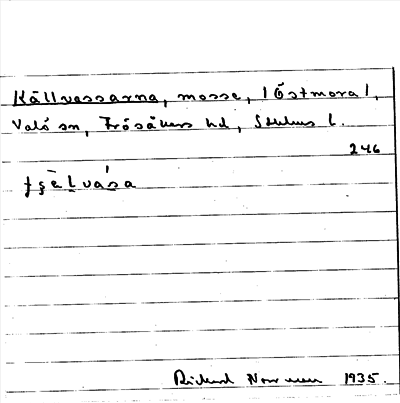 Källvassarna, mosse, (Östmora),
Valö sn, Frösåkers hd, Sthlms l.
246
Richard Norrman 1935.